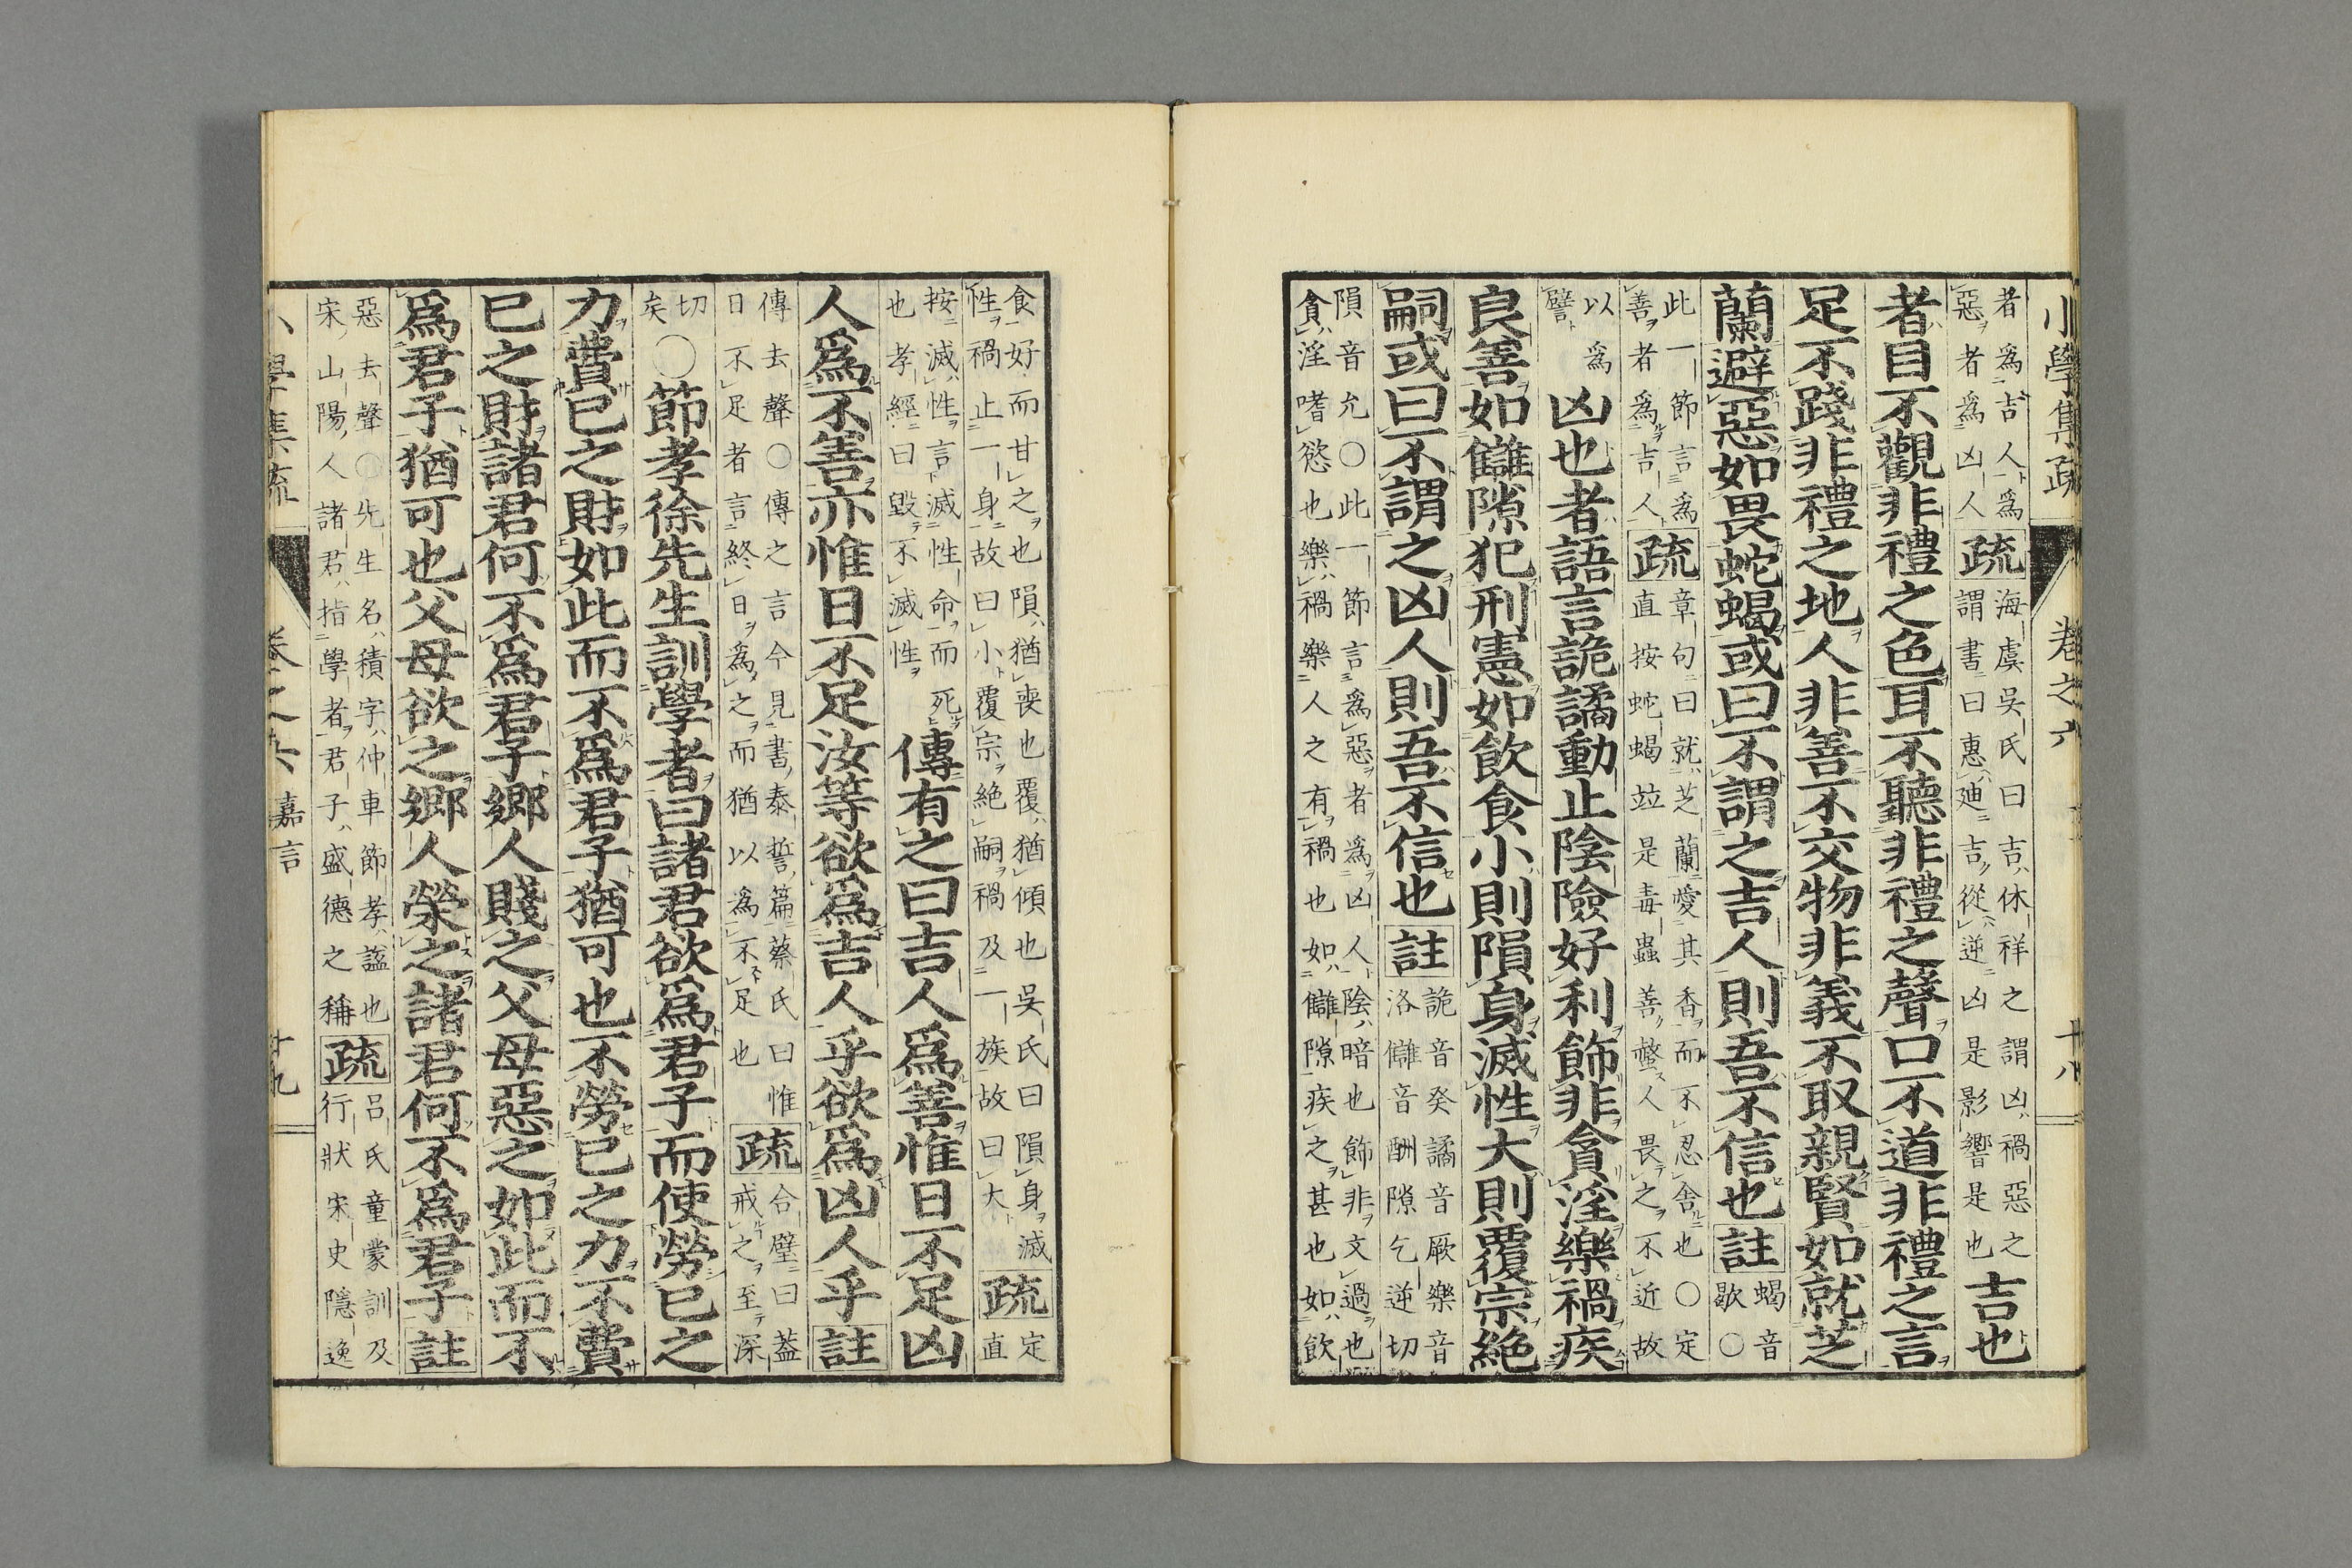 小學集疏 卷之六 十八
者爲吉人爲
惡者爲凶人
疏
海虞吳氏曰吉休祥之謂凶禍惡之
謂書曰惠迪吉從逆凶是影響是也
吉也
者目不觀非禮之色耳不聽非禮之聲口不道非禮之言
足不踐非禮之地人非善不交物非義不取親賢如就芝
蘭避惡如畏蛇蝎或曰不謂之吉人則吾不信也
註
蝎音
歇〇
此一節言爲
善者爲吉人
疏
章句曰就芝蘭愛其香而不忍舍也〇定
直按蛇蝎竝是毒蟲善螫人畏之不近故
以爲
譬
凶也者語言詭譎動止陰險好利飾非貪淫樂禍疾
良善如讎隙犯刑憲如飲食小則隕身滅性大則覆宗絶
嗣或曰不謂之凶人則吾不信也
註
詭音癸譎音厥樂音
洛讎音酬隙乞逆切
隕音允〇此一節言爲惡者爲凶人陰暗也飾非文過也
貪淫嗜慾也樂禍樂人之有禍也如讎隙疾之甚也如飲
食好而甘之也隕猶喪也覆猶傾也吳氏曰隕身滅
性禍止一身故曰小覆宗絶嗣禍及一族故曰大
疏
定
直
按滅性言滅性命而死
也孝經曰毀不滅性
傳有之曰吉人爲善惟日不足凶
人爲不善亦惟日不足汝等欲爲吉人乎欲爲凶人乎
註
傳去聲〇傳之言今見書泰誓篇蔡氏曰惟
日不足者言終日爲之而猶以爲不足也
疏
合璧曰蓋
戒之至深
切
矣
〇節孝徐先生訓學者曰諸君欲爲君子而使勞已之
力費已之財如此而不爲君子猶可也不勞已之力不費
已之財諸君何不爲君子鄉人賤之父母惡之如此而不
爲君子猶可也父母欲之鄉人榮之諸君何不爲君子
註
惡去聲〇先生名積字仲車節孝謚也
宋山陽人諸君指學者君子盛德之稱
疏
呂氏童蒙訓及
行狀宋史隱逸
小學集疏 卷之六 嘉言 十九